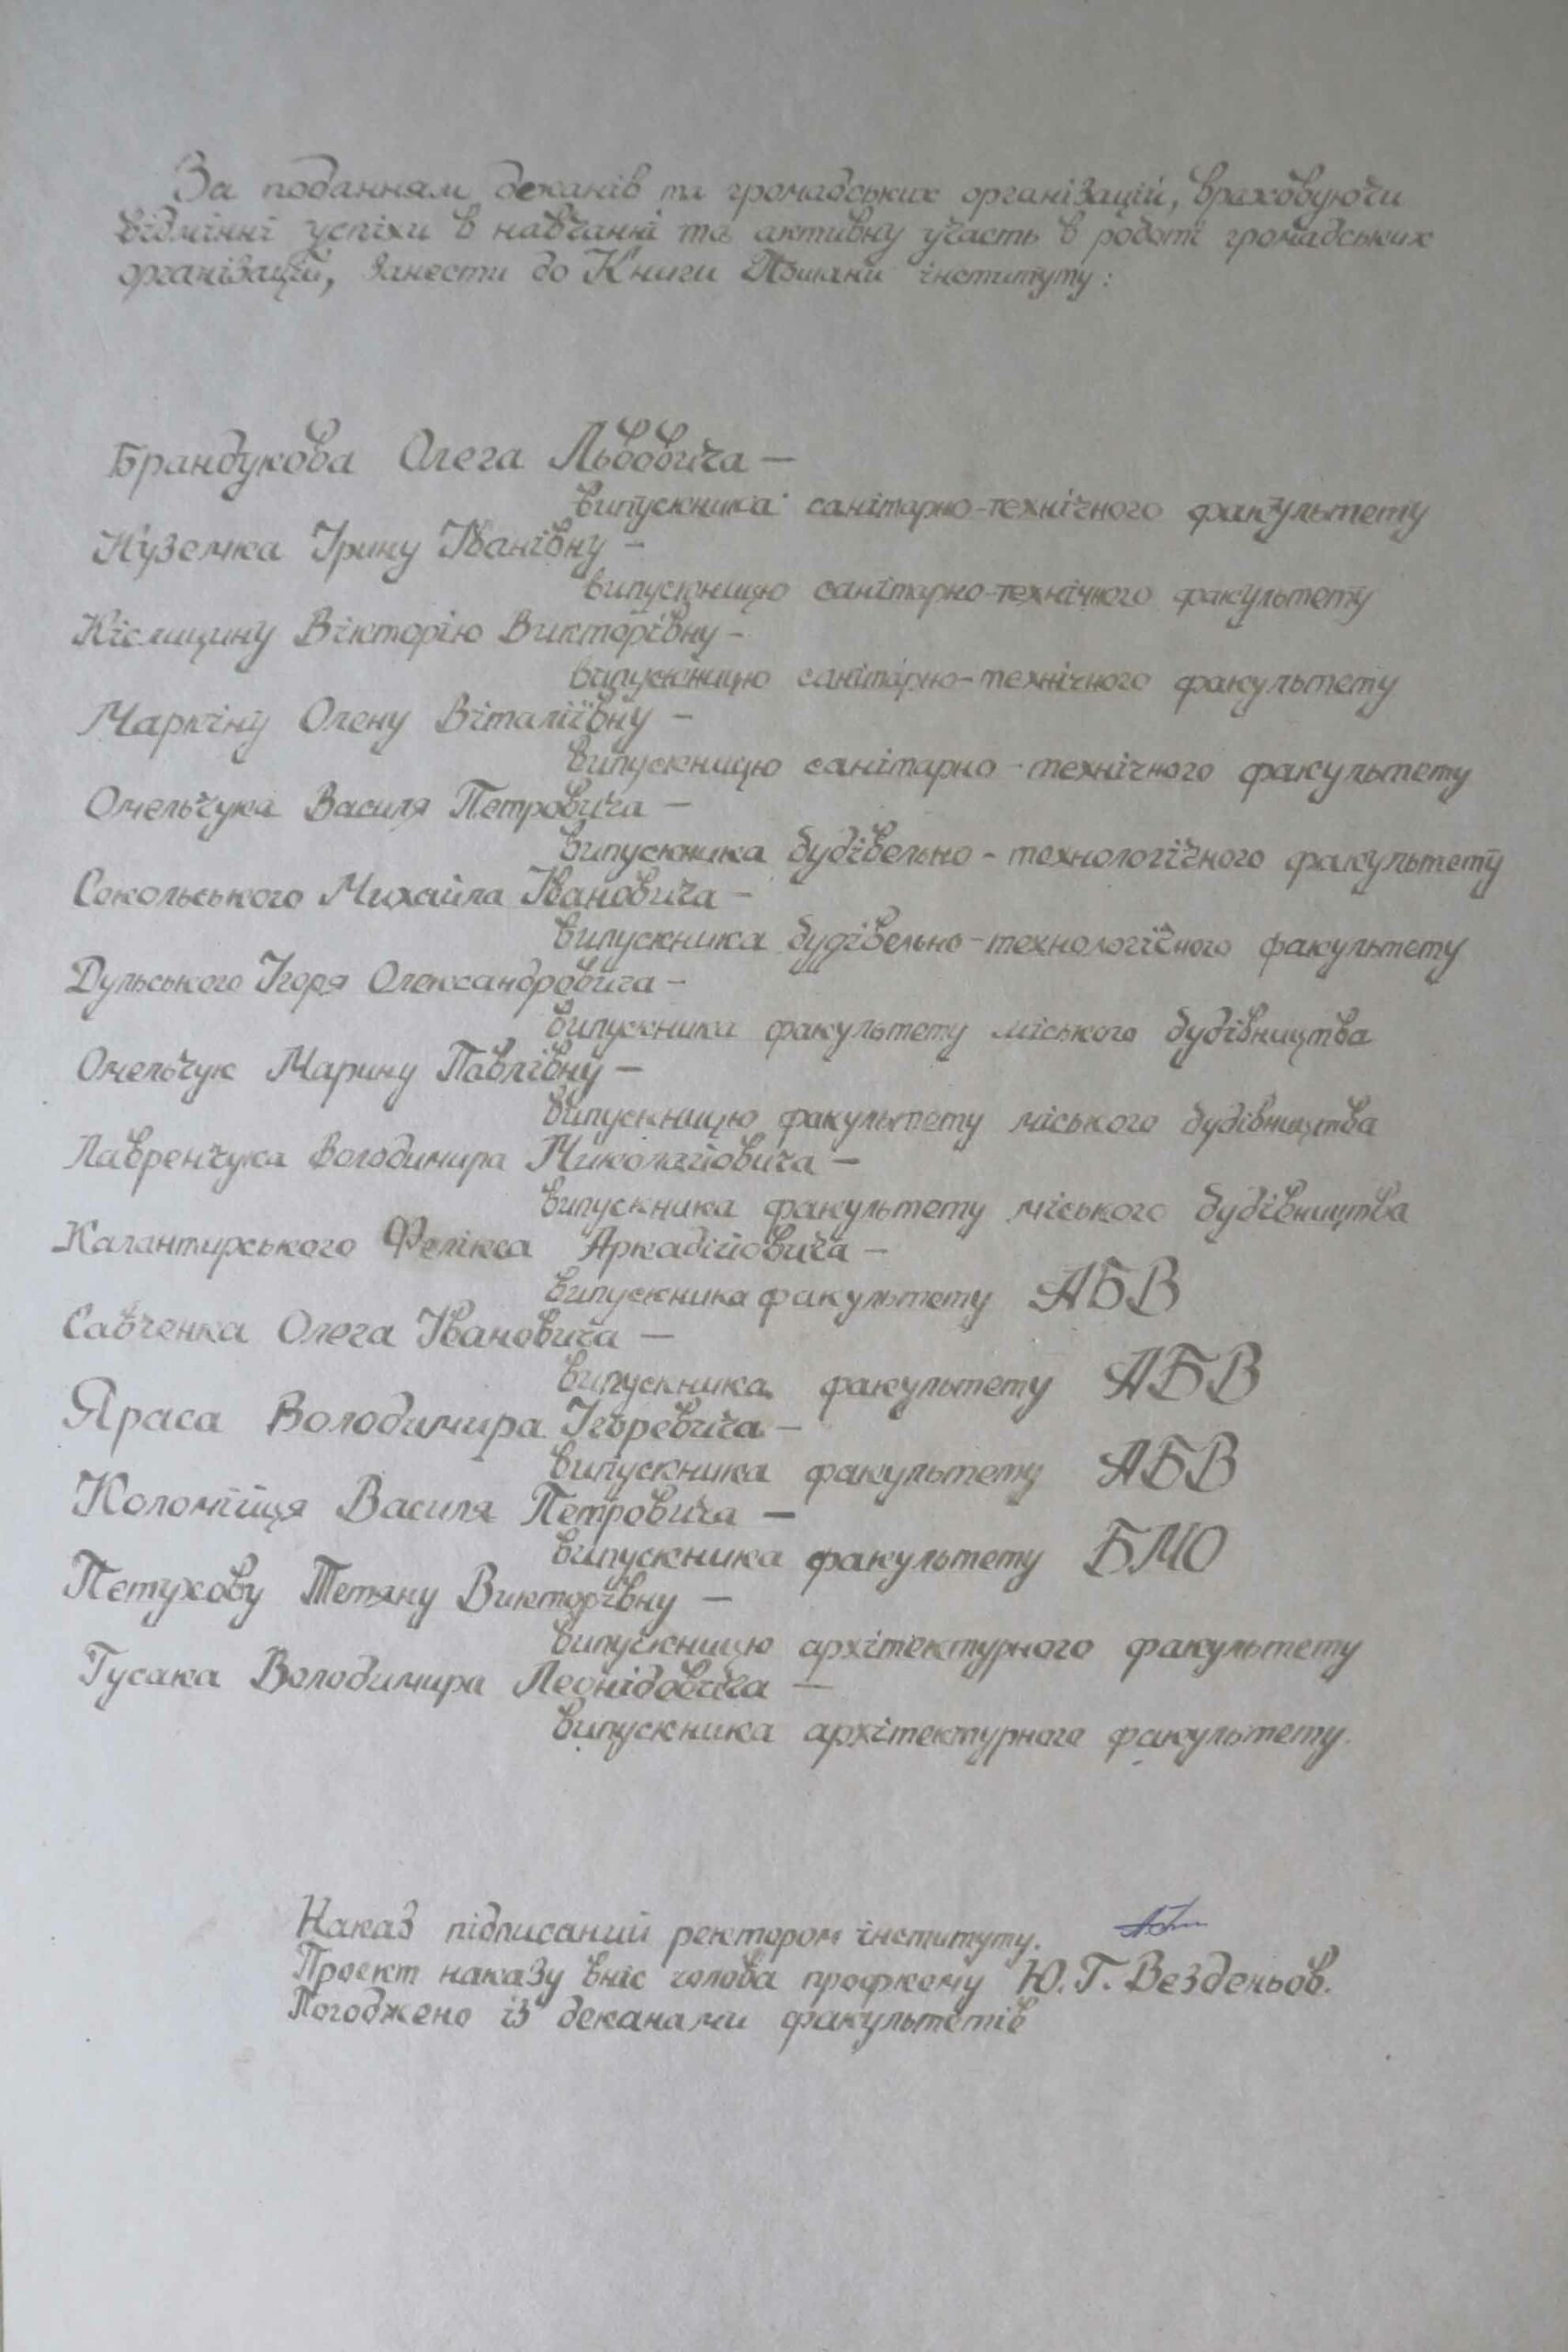 За поданням деканів та громадських організацій, враховуючи
відмінні успіхи в навчанні та активну участь в роботі громадських
організацій, занести до Книги Пошани інституту:
Брандукова Олега Львовича —
випускника санітарно-технічного факультету
Куземка Ірину Іванівну —
випускницю санітарно-технічного факультету
Кіслицину Вікторію Викторівну —
випускницю санітарно-технічного факультету
Маркіну Олену Віталіївну —
випускницю санітарно-технічного факультету
Омельчука Василя Петровича —
випускника будівельно-технологічного факультету
Сокольського Михайла Івановича —
випускника будівельно-технологічного факультету
Дульського Ігоря Олександровича —
випускника факультету міського будівництва
Омельчук Марину Павлівну —
випускницю факультету міського будівництва
Лавренчука Володимира Миколайовича —
випускника факультету міського будівництва
Калантирського Фелікса Аркадійовича —
випускника факультету АБВ
Савченка Олега Івановича —
випускника факультету АБВ
Яраса Володимира Ігоревича —
випускника факультету АБВ
Коломійця Василя Петровича —
випускника факультету БМО
Петухову Тетяну Викторівну —
випускницю архітектурного факультету
Гусака Володимира Леонідовича —
випускника архітектурного факультету.
Наказ підписаний ректором інституту.
Проект наказу вніс голова профкому Ю.Г. Везденьов.
Погоджено із деканами факультетів